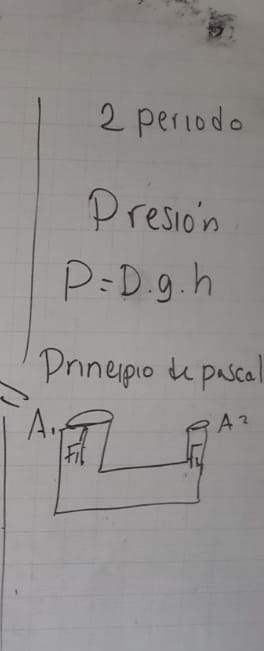 2 periodo
Presión
P=D.g.h
Prineipio de pascal
A1 A2
F1 F2